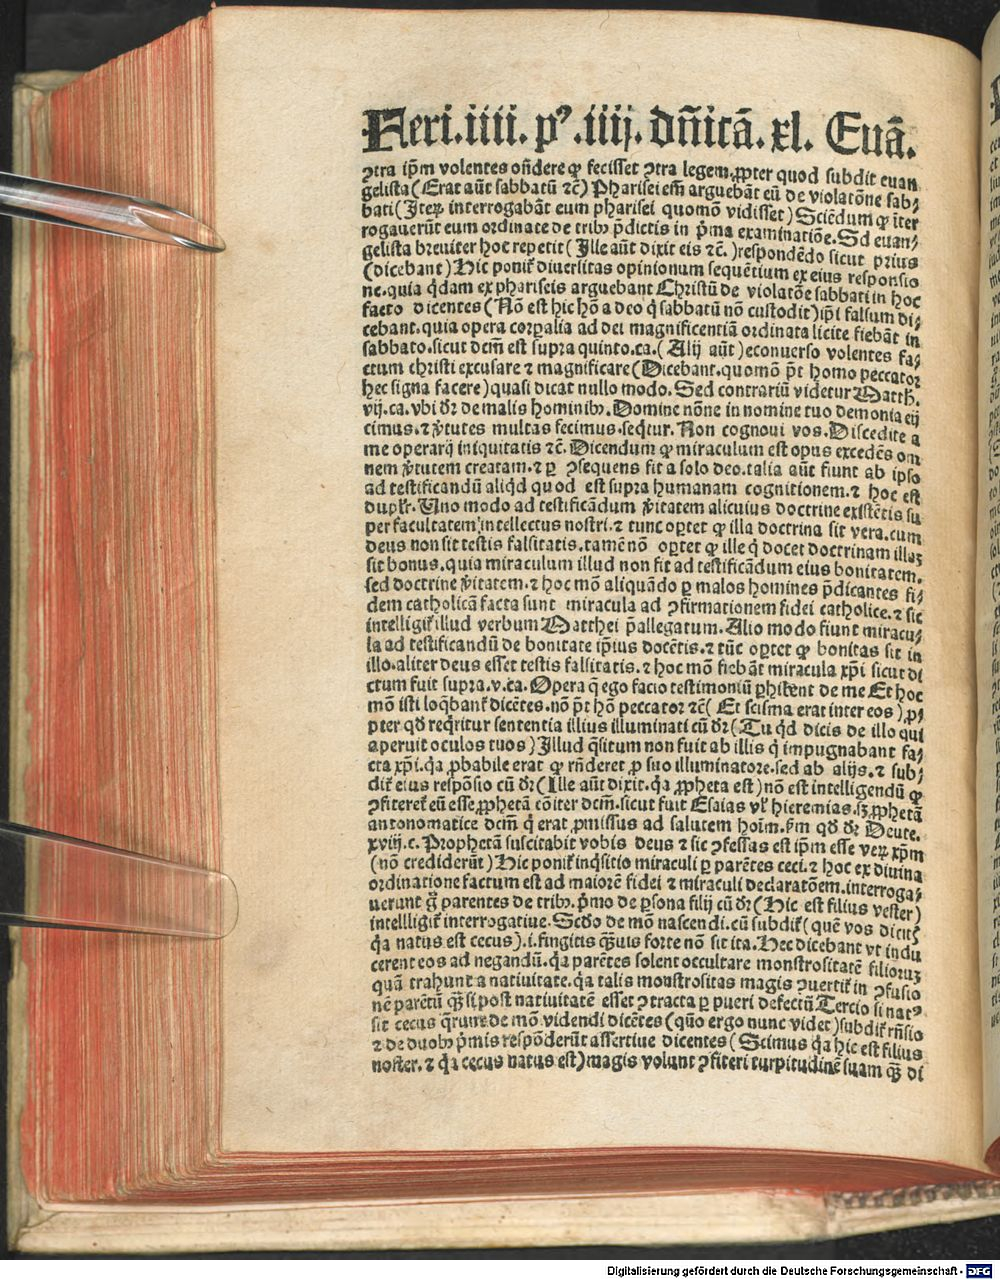 Feri.iiii. pꝰ .iiij. dñicã. xl. Euã.
ↄtra ip̃m volentes oñdere ꝙ fecisset ↄtra legem.ꝓpter quod subdit euan
gelista (Erat aũt sabbatũ ⁊c̃) Pharisei em̃ arguebãt eũ de violatõne sab⸗
bati (Iteꝝ interrogabãt eum pharisei quomõ vidisset) Sciẽdum ꝙ iter̃
rogauerũt eum ordinate de tribꝫ p̃dictis in p̃ma examinatiõe. Sd euan⸗
gelista breuiter hoc repetit (Ille aũt dixit eis ⁊c̃.) respondẽdo sicut prius
(dicebant) Hic poniť diuersitas opinionum sequẽtium ex eius responsio
ne. quia q̃dam ex phariseis arguebant Christũ de violatõe sabbati in hoc
facto dicentes (Nõ est hic hõ a deo q̃ sabbatũ nõ custodit) ip̃i falsum di⸗
cebant. quia opera corꝑalia ad dei magnificentiã ordinata licite fiebãt in
sabbato. sicut dcm̃ est supra quinto. ca. (Alij aũt) econuerso volentes fa⸗
ctum christi excusare ⁊ magnificare (Dicebant. quomõ p̃t homo peccator
hec signa facere) quasi dicat nullo modo. Sed contrariũ videtur Matth.
vij. ca. vbi dr̃ de malis hominibꝫ. Domine nõne in nomine tuo demonia eij
cimus. ⁊ v̓tutes multas fecimus. seq̃tur. Non cognoui vos. Discedite a
me operarij iniquitatis ⁊c̃. Dicendum ꝙ miraculum est opus excedẽs om
nem v̓tutem creatam. ⁊ ꝑ ↄsequens fit a solo deo. talia aũt fiunt ab ipso
ad testificandũ aliq̃d quod est supra humanam cognitionem. ⁊ hoc est
dupłr. Uno modo ad testificãdum v̓itatem alicuius doctrine existẽtis su
per facultatem intellectus nostri. ⁊ tunc oꝑtet ꝙ illa doctrina sit vera. cum
deus non sit testis falsitatis. tamẽ nõ oꝑtet ꝙ ille q̃ docet doctrinam illaꝫ
sit bonus. quia miraculum illud non fit ad testificãdum eius bonitatem.
sed doctrine v̓itatem. ⁊ hoc mõ aliquãdo ꝑ malos homines p̃dicantes fi⸗
dem catholicã facta sunt miracula ad ↄfirmationem fidei catholice. ⁊ sic
intelligiť illud verbum Matthei p̃allegatum. Alio modo fiunt miracu⸗
la ad testificandũ de bonitate ip̃ius docẽtis. ⁊ tũc oꝑtet ꝙ bonitas sit in
illo. aliter deus esset testis falsitatis. ⁊ hoc mõ fiebãt miracula xp̃i sicut di
ctum fuit supra. v. ca. Opera q̃ ego facio testimoniũ ꝑhibent de me Et hoc
mõ isti loq̃banť dicẽtes. nõ p̃t hõ peccator ⁊c̃ (Et scisma erat inter eos) ꝓ⸗
pter qd̃ req̃ritur sententia illius illuminati cũ dr̃ (Tu q̃d dicis de illo qui
aperuit oculos tuos) Illud q̃situm non fuit ab illis q̃ impugnabant fa⸗
cta xp̃i. q̃a ꝓbabile erat ꝙ rñderet ꝓ suo illuminatore. sed ab alijs. ⁊ sub⸗
diť eius respõsio cũ dr̃ (Ille aũt dixit. q̃a ꝓpheta est) nõ est intelligendũ ꝙ
ↄfitereť eũ esse ꝓphetã cõiter dcm̃. sicut fuit Esaias vł hieremias. sꝫ ꝓphetã
antonomatice dcm̃ q̃ erat ꝓmissus ad salutem hoĩm. ẜm qd̃ dr̃ Deute.
xviij. c. Prophetã suscitabit vobis deus ⁊ sic ↄfessus est ip̃m esse veꝝ xp̃m
(nõ crediderũt) Hic poniť inq̃sitio miraculi ꝑ parẽtes ceci. ⁊ hoc ex diuina
ordinatione factum est ad maiorẽ fidei ⁊ miraculi declaratõem. interroga⸗
uerunt g̃ parentes de tribꝫ. p̃mo de ꝑsona filij cũ dr̃ (Hic est filius vester)
intelligiť interrogatiue. Scd̃o de mõ nascendi. cũ subdiť (quẽ vos dicitꝭ
q̃a natus est cecus). i. fingitis q̃ꝫuis forte nõ sit ita. Hec dicebant vt indu
cerent eos ad negandũ. q̃a parẽtes solent occultare monstrositatẽ filioruꝫ
quã trahunt a natiuitate. q̃a talis monstrositas magis ↄuertiť in ↄfusio
nẽ parẽtũ q̃ꝫ si post natiuitatẽ esset ↄtracta ꝑ pueri defectũ Tercio si natꝰ
sit cecus q̃runt de mõ videndi dicẽtes (quõ ergo nunc videt) subdiť rñsio
⁊ de duobꝫ p̃mis respõderũt assertiue dicentes (Scimus q̃a hic est filius
noster. ⁊ q̃a cecus natus est) magis volunt ↄfiteri turpitudinẽ suam q̃ꝫ di
Digitalisierung gefördert durch die Deutsche Forschungsgemeinschaft - DFG